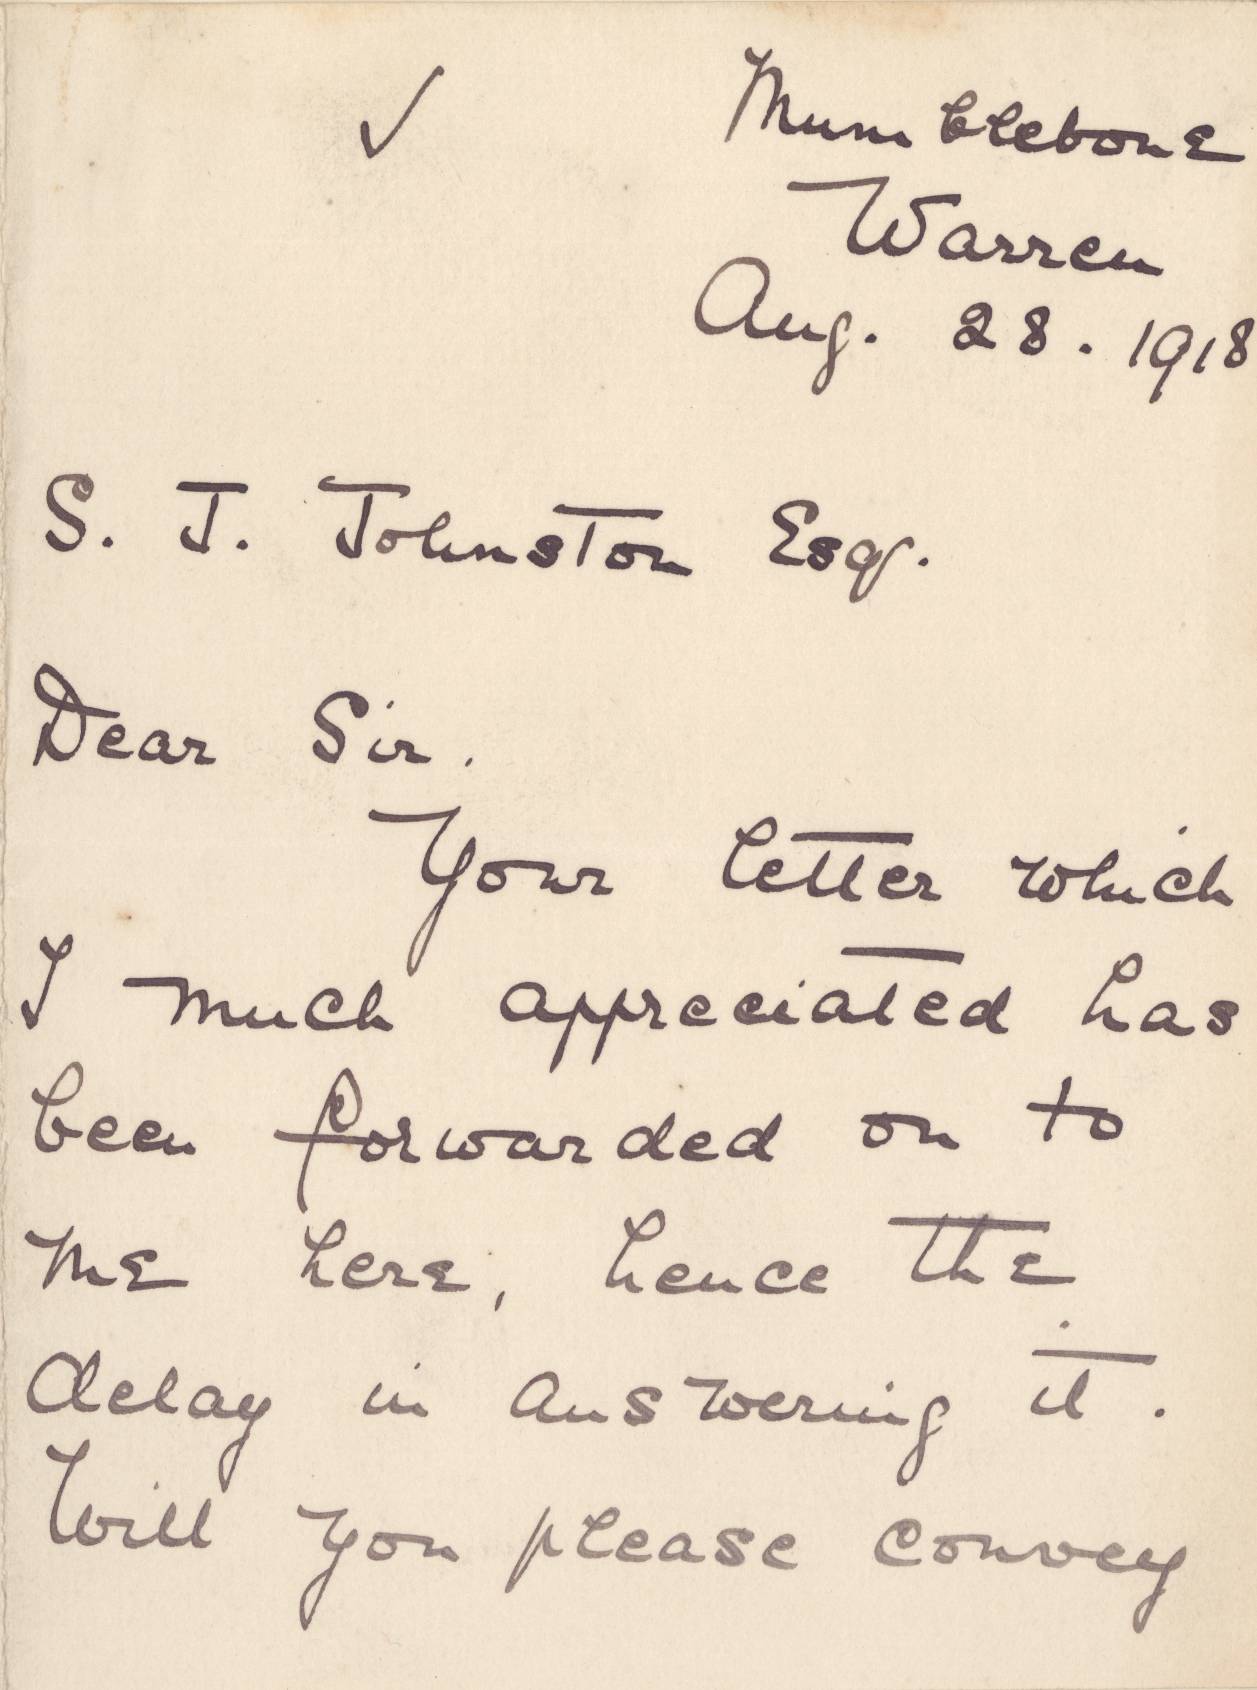 Mumblebone
Warren
Aug. 28. 1918
S. J. Johnston Esq.
Dear Sir.
Your letter which
I much appreciated has
been forwarded on to
me here, hence the
delay in answering it.
Will you please convey